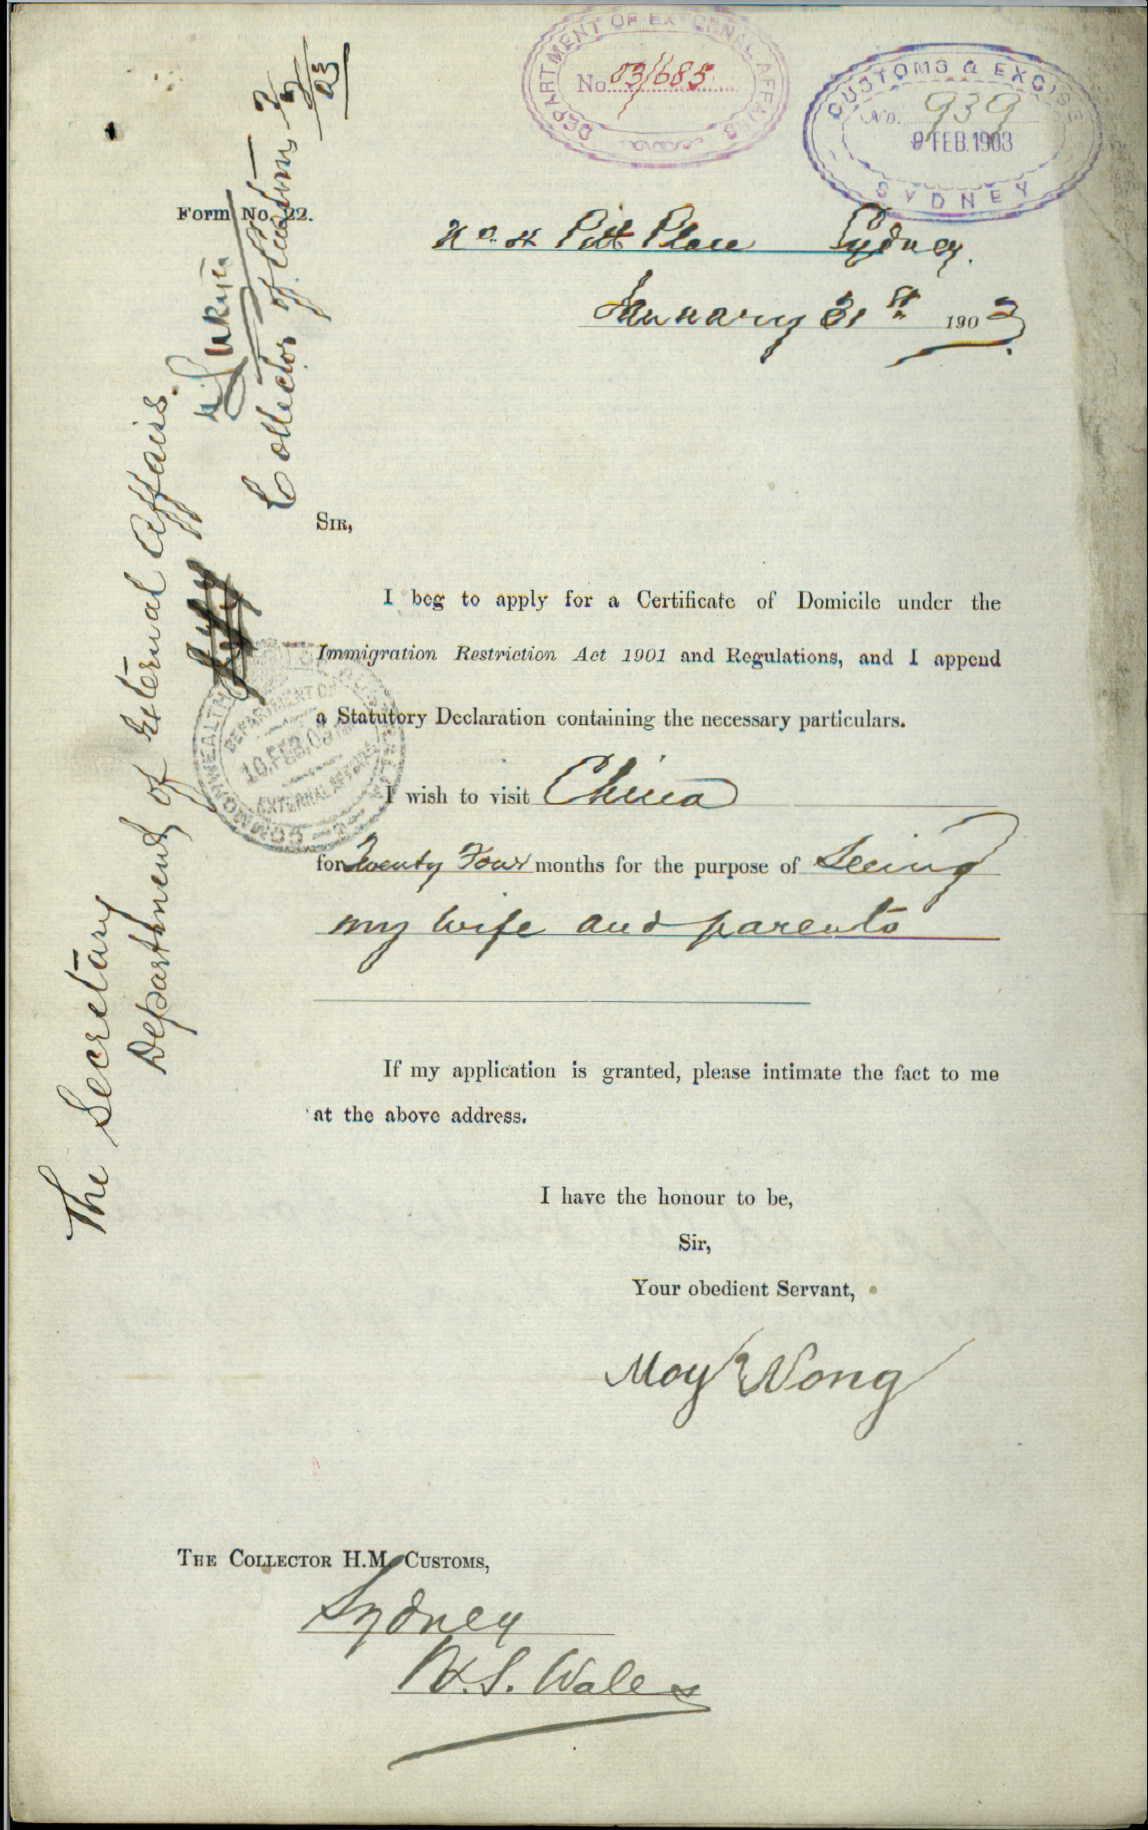 DEPARTMENT OF EXTERNAL AFFAIRS
No. 03/685
CUSTOMS & EXCISE
No. 939
9 FEB. 1903
SYDNEY
Form No. 22.
Pitt Place Sydney.
January 31st 1903
SIR,
I beg to apply for a Certificate of Domicile under the
Immigration Restriction Act 1901 and Regulations, and I append
a Statutory Declaration containing the necessary particulars.
I wish to visit China
for Twenty Four months for the purpose of Seeing
my wife and parents
If my application is granted, please intimate the fact to me
at the above address.
I have the honour to be,
Sir,
Your obedient Servant,
Moy Nong
THE COLLECTOR H.M. CUSTOMS,
Sydney
N.S. Wales
The Secretary
Department of External Affairs.
Collector of Customs
COMMONWEALTH
DEPARTMENT OF
10.FEB.03
EXTERNAL AFFAIRS